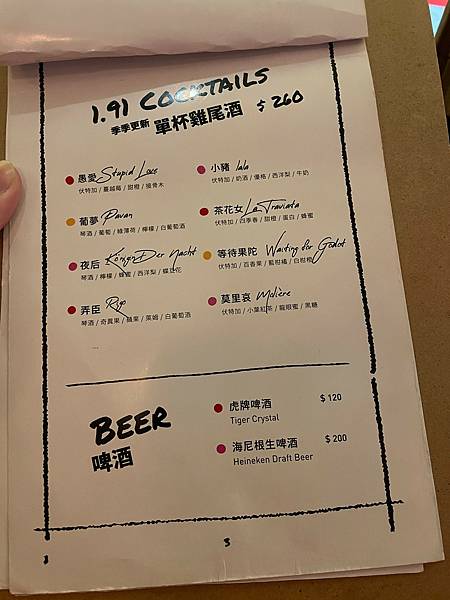 1.91 COCKTAILS
季季更新 單杯雞尾酒 $260
愚愛 Stupid Love
伏特加 / 蔓越莓 / 甜橙 / 接骨木
葡夢 Pavan
琴酒 / 葡萄 / 綠薄荷 / 檸檬 / 白葡萄酒
夜后 Königin Der Nacht
琴酒 / 檸檬 / 蜂蜜 / 西洋梨 / 蝶豆花
弄臣 Rigo
琴酒 / 奇異果 / 蘋果 / 萊姆 / 白葡萄酒
小豬 lala
伏特加 / 奶酒 / 優格 / 西洋梨 / 牛奶
茶花女 La Traviata
伏特加 / 四季春 / 甜橙 / 蛋白 / 蜂蜜
等待果陀 Waiting for Godot
伏特加 / 百香果 / 藍柑橘 / 白柑橙
莫里哀 Molière
伏特加 / 小葉紅茶 / 龍眼蜜 / 黑糖
BEER
啤酒
虎牌啤酒 $120
Tiger Crystal
海尼根生啤酒 $200
Heineken Draft Beer
3